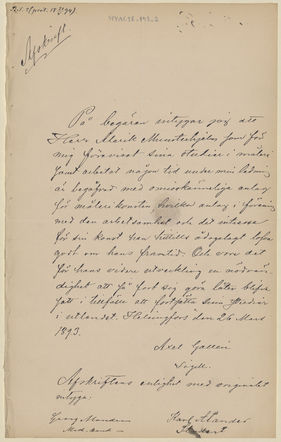 Afskrift.
På begäran intygar jag att
Herr Alarik Munsterhjelm som för
mig förevisat sina studier i måleri
samt arbetat någon tid under min ledning
är begåfvad med omisskänneliga anlag
för målerikonsten hvilka anlag i förening
med den arbetsamhet och det intresse
för sin konst han hittills ådagalagt lofva
godt om hans framtid. Och vore det
för hans vidare utveckling en nödvän-
dighet att så fort sig göra låter blifva
satt i tillfälle att fortsätta sina studier
i utlandet. Helsingfors den 26 Mars
1893.
Axel Gallén
Sigill.
Afskriftens enlighet med originalet
intyga:
Georg
Med. kand
Karl
Student